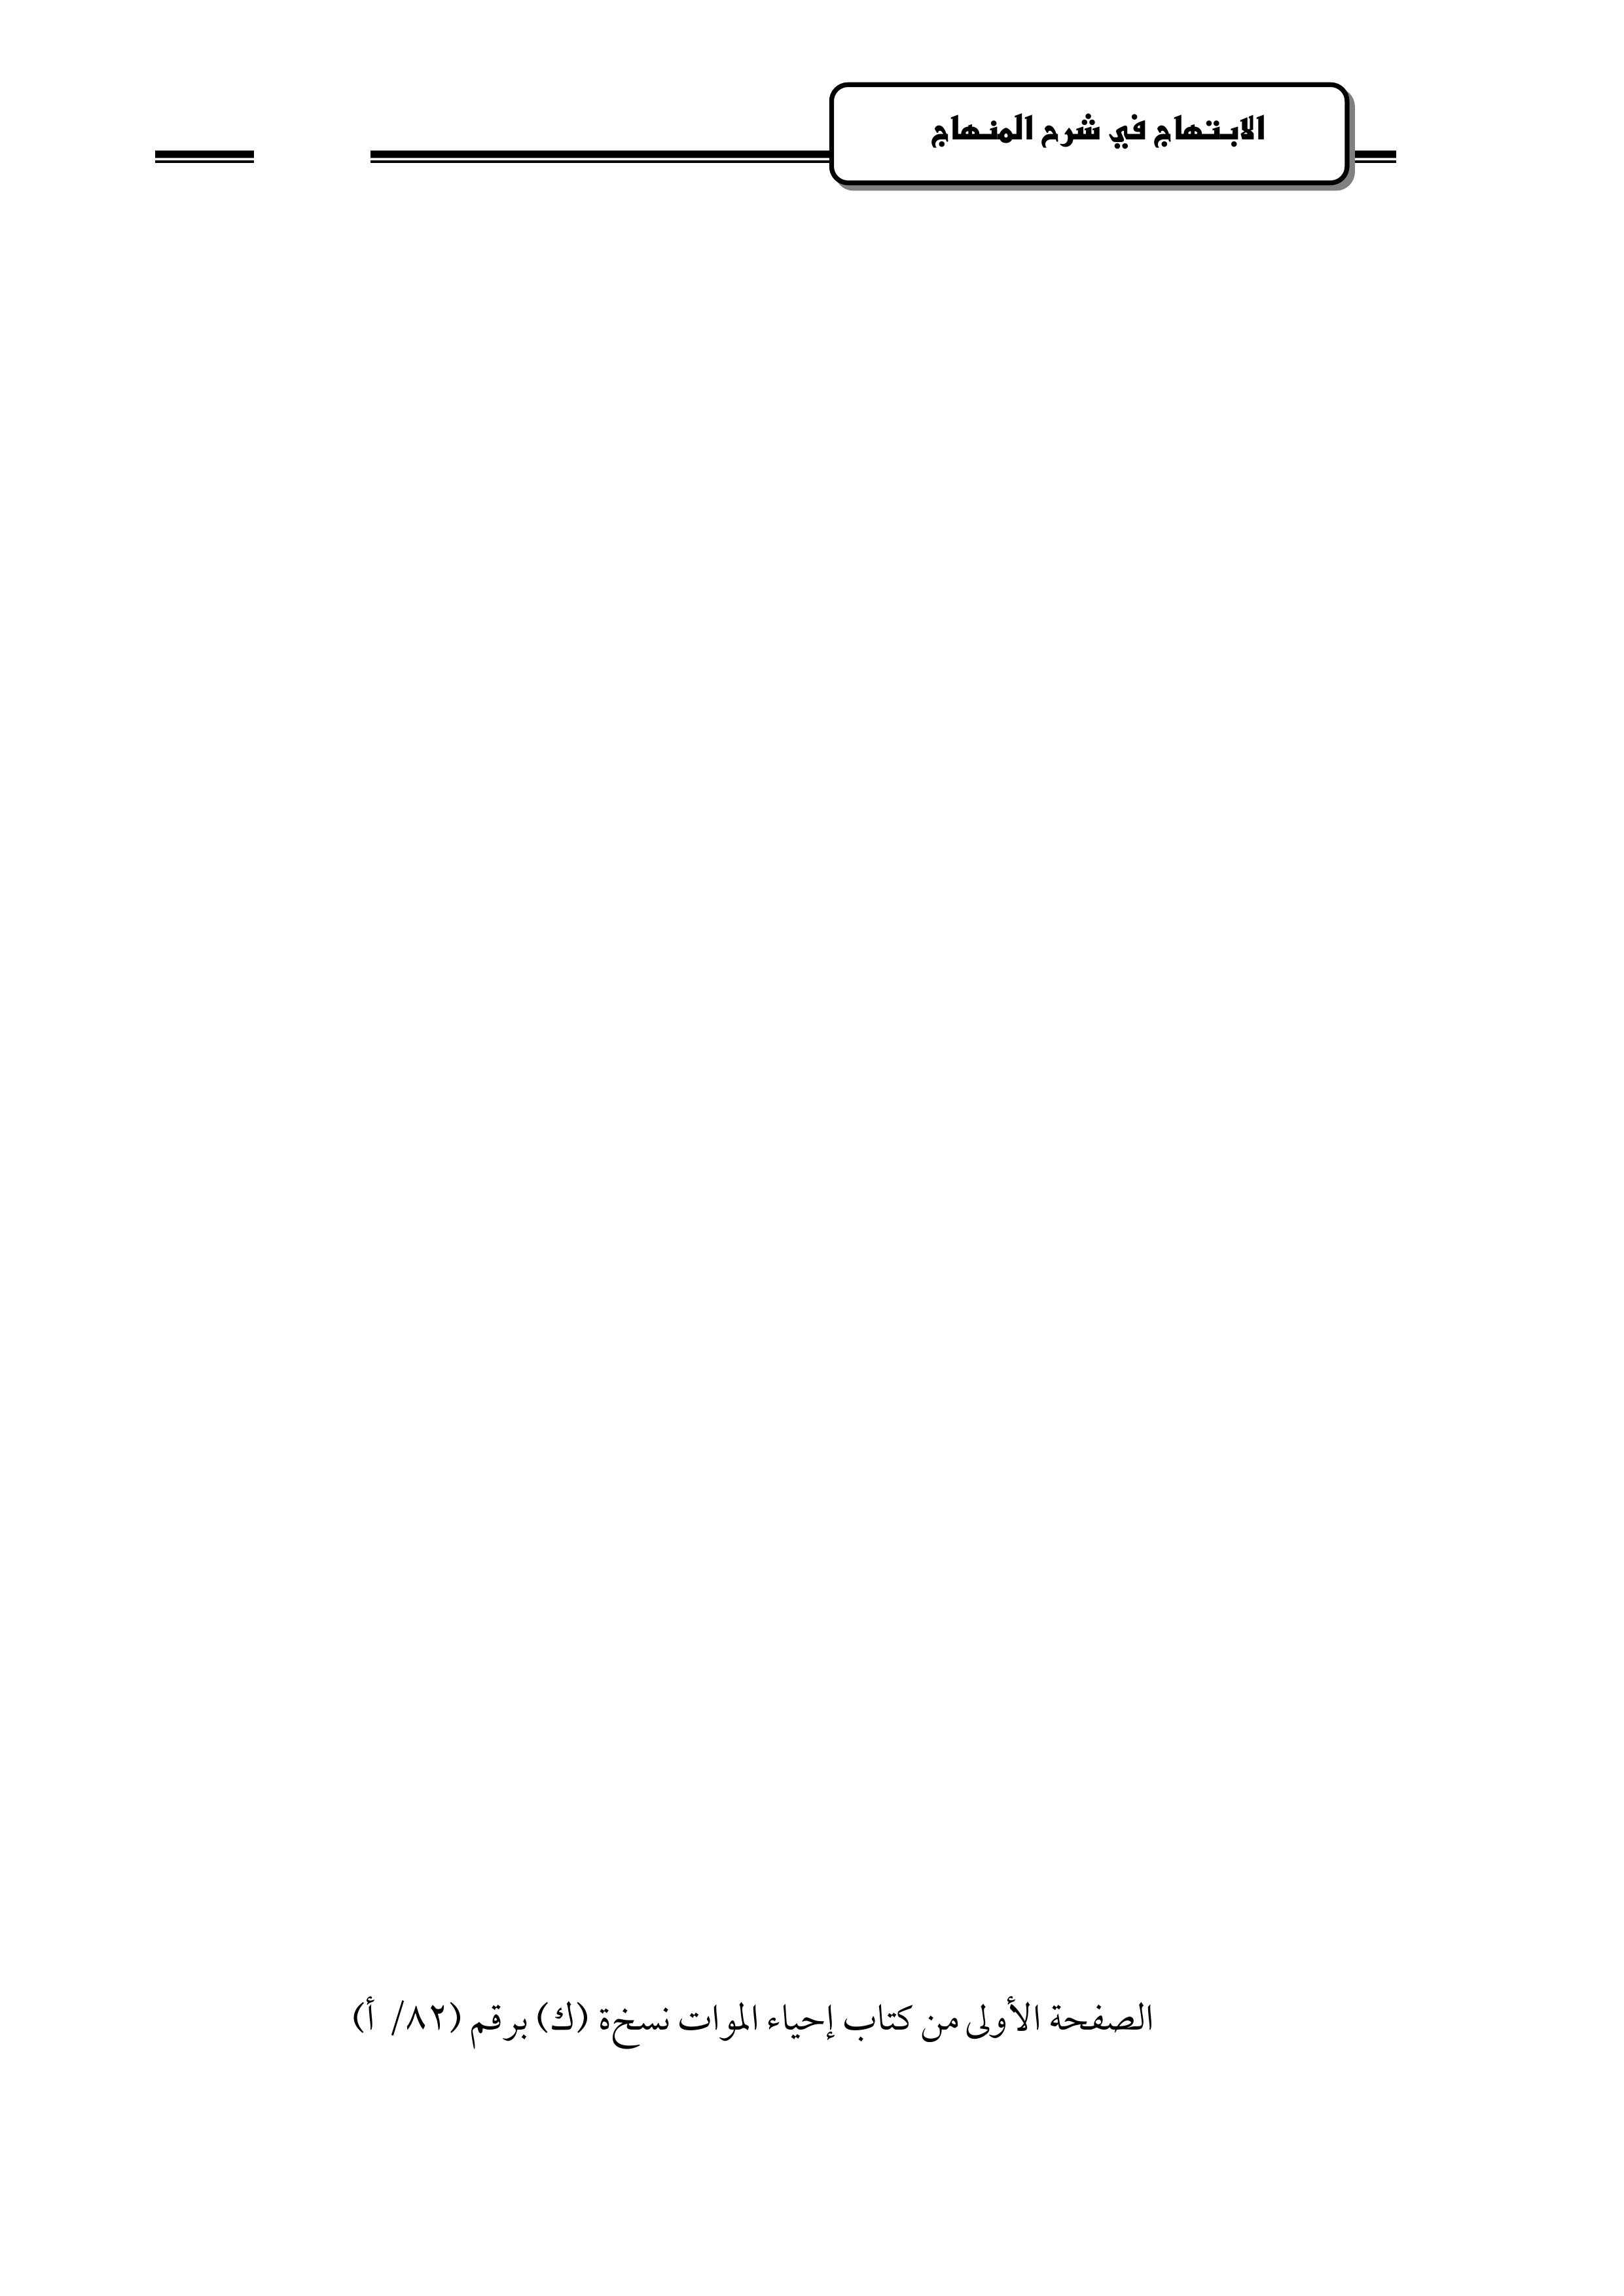 الابتهاج في شرح المنهاج
الصفحة الأولى من كتاب إحياء الموات نسخة (ك) برقم (٨٢/ أ)